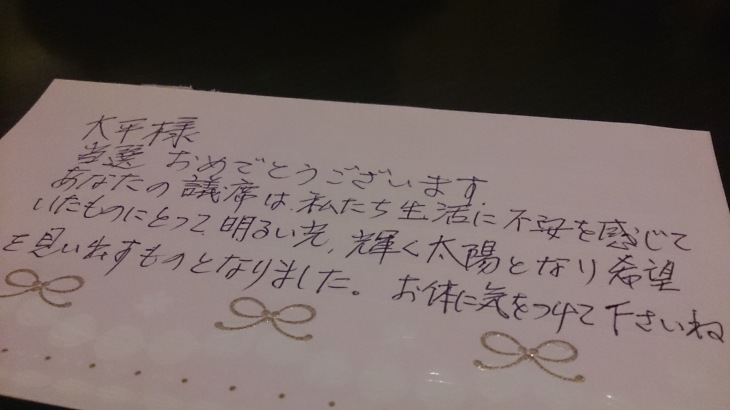 大平様
当選 おめでとうございます.
あなたの議席は、私たち生活に不安を感じて
いたものにとって、明るい光、輝く太陽となり希望
を見い出すものとなりました。お体に気をつけて下さいね